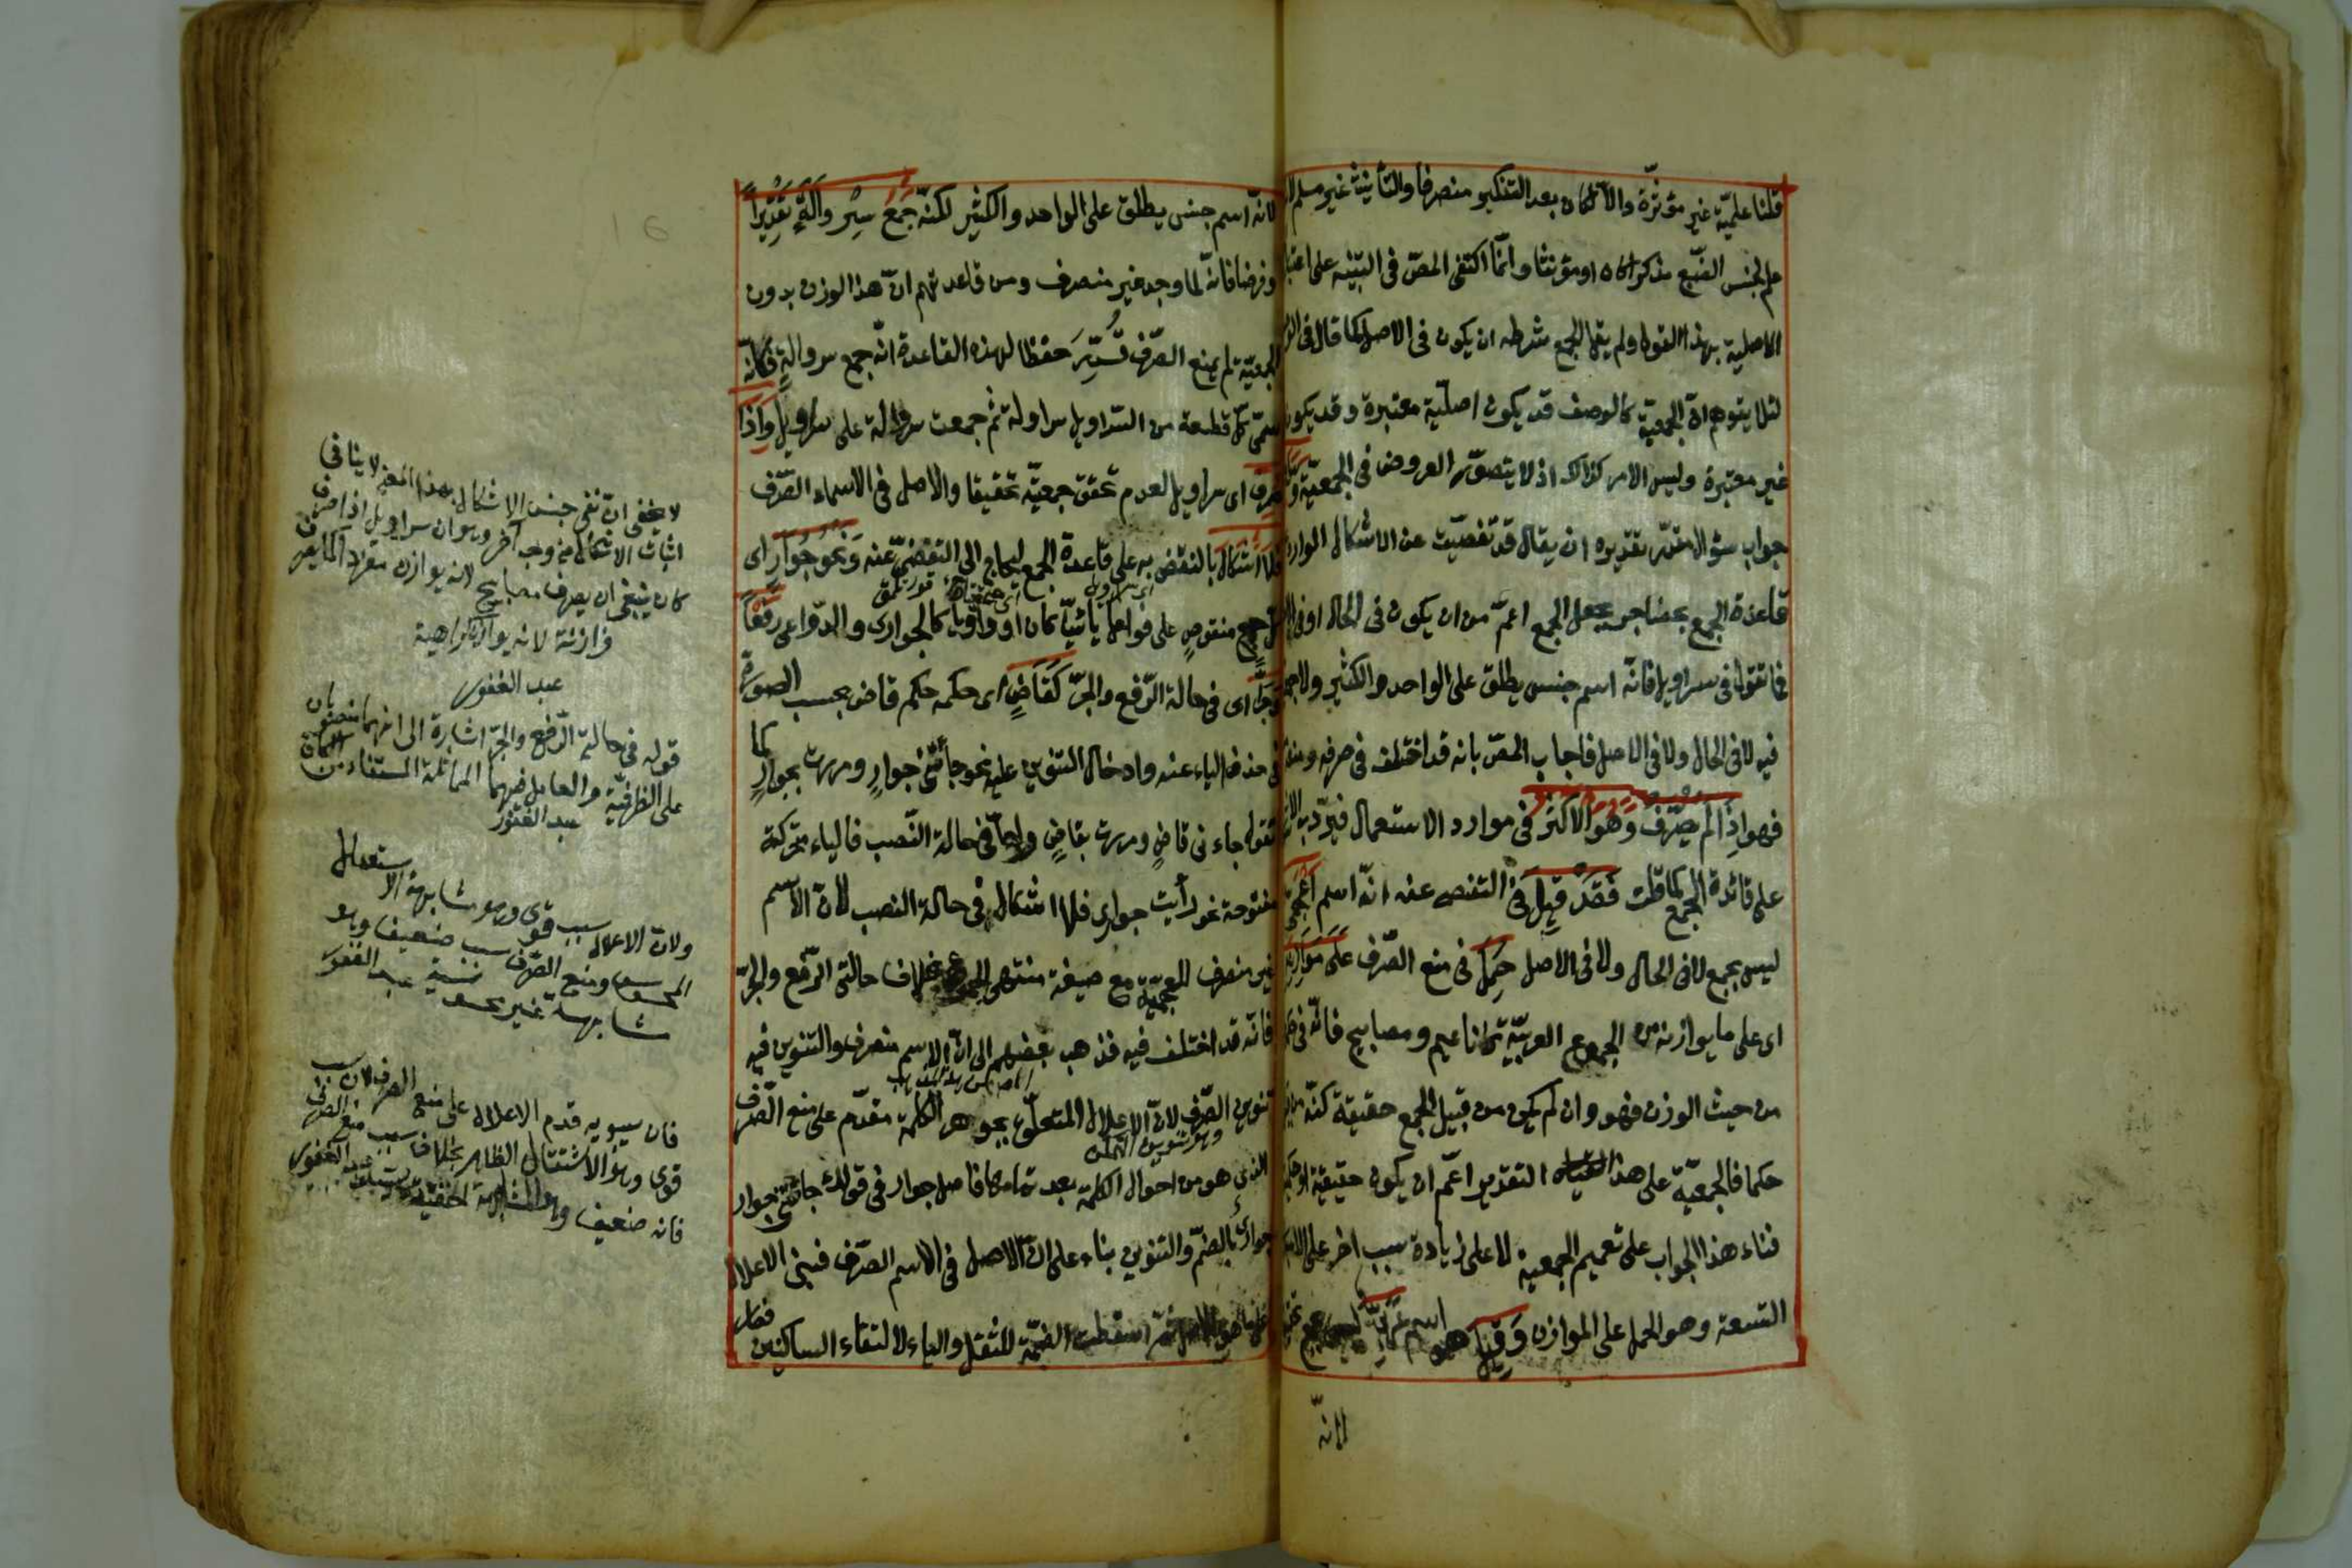 قلنا علميّة غير مؤثّرة والا لكان بعد التنكير منصرفا والتأنيث غير مسلم
علم لجنس الضبع مذكرا كان او مؤنثا وانّما اكتفى المصّ فى التنبيه على
الاصلية بهذا القول ولم يقل الجمع شرطه ان يكون فى الاصل كما قال فى
لئلا يتوهم انّ الجمعيّة كالوصف قد يكون اصليّة معتبرة وقد يكون
غير معتبرة وليس الامر كذلك اذ لا يتصوّر العروض فى الجمعيّة
جواب سؤال مقدّر تقديره ان يقال قد تفصّيت عن الاشكال الوارد
قاعدة الجمع بحضاجر بجعل الجمع اعمّ من ان يكون فى الحال او فى
فما تقول فى سراويل فانّه اسم جنس يطلق على الواحد والكثير ولا
فيه لا فى الحال ولا فى الاصل فاجاب المصّ بانه قد اختلف فى صرفه
فهو اذا لم يصرف وهو الاكثر فى موارد الاستعمال فيرد به
على قائدة الجمع كما قلت فقد قيل فى التفصى عنه انّه اسم اعجمى
ليس بجمع لا فى الحال ولا فى الاصل حمل فى منع الصّرف على موازنه
اى على ما يوازنه من الجموع العربيّة كاناعيم ومصابيح فانّه فى
من حيث الوزن فهو وان لم يكن من قبيل الجمع حقيقة لكنّه
حكما فالجمعيّة على هذا التقدير اعمّ ان يكون حقيقة او
فبناء هذا الجواب على تعميم الجمعية لا على زيادة سبب اخر على
التسعة وهو الحمل على الموازن وقيل هو اسم عربىّ
لانّه
لانّه اسم جنس يطلق على الواحد والكثير لكنّه جمع سروالة تقديرا
وفرضا فانّه لما وجد غير منصرف ومن قاعدتهم انّ هذا الوزن بدون
الجمعيّة لم يمنع الصّرف قدّر حفظا لهذه القاعدة انّه جمع سروالة فكانّه
سمّى كلّ قطعة من السّراويل سراولة ثمّ جمعت سروالة على سراويل واذا
صرف اى سراويل لعدم تحقق جمعيّة تحقيقا والاصل فى الاسماء الصّرف
فلا اشكال بالنقض به على قاعدة الجمع ليحتاج الى التفصّى عنه ونحو جوار اى
كلّ جمع منقوص على فواعل يائيّا كان او واويا كالجوارى والدّواعى رفعا
وجرّا اى فى حالة الرّفع والجرّ كقاض اى حكمه حكم قاض بحسب الصورة
فى حذف الياء عنه وادخال التنوين عليه نحو جاءتنى جوار ومررت بجوار كما
تقول جاءنى قاض ومررت بقاض وامّا فى حالة النّصب فالياء متحركة
مفتوحة نحو رأيت جوارى فلا اشكال فى حالة النصب لانّ الاسم
غير منصرف للجمعيّة مع صيغة منتهى الجموع بخلاف حالتى الرّفع والجرّ
فانّه قد اختلف فيه فذهب بعضهم الى انّ الاسم منصرف والتنوين فيه
تنوين الصّرف لانّ الاعلال المتعلّق بجوهر الكلمة مقدّم على منع الصّرف
وهو تنوين التمكن
الذى هو من احوال الكلمة بعد تمامها فاصل جوار فى قولك جاءتنى جوار
جوارى بالضمّ والتنوين بناء على انّ الاصل فى الاسم الصّرف فبنى الاعلال
اسقطت الضمّة للثقل والياء لالتقاء الساكنين فصار
لا يخفى انّ نفى جنس الاشكال بهذا المعنى لا ينافى
اثبات الاشكال من وجه آخر وهو ان سراويل اذا صرف
كان ينبغى ان يصرف مصابيح لانه يوازن مفردا كما يصرف
فرازنة لانه يوازن كراهية
عبد الغفور
قوله فى حالتى الرّفع والجرّ اشارة الى انهما منصوبان
على الظرفيّة والعامل فيهما المماثلة المستفاد من الكاف
عبد الغفور
ولانّ الاعلال سبب قوى وهو مشابهة الاستعمال
المحسوس ومنع الصّرف سبب ضعيف وهو
مشابهة غير محسوسة عبد الغفور
فان سيبويه قدم الاعلال على منع الصرف لان سبب
قوى وهو الاستثقال الظاهر بخلاف سبب منع الصرف
فانه ضعيف وهو المشابهة الخفية عبد الغفور